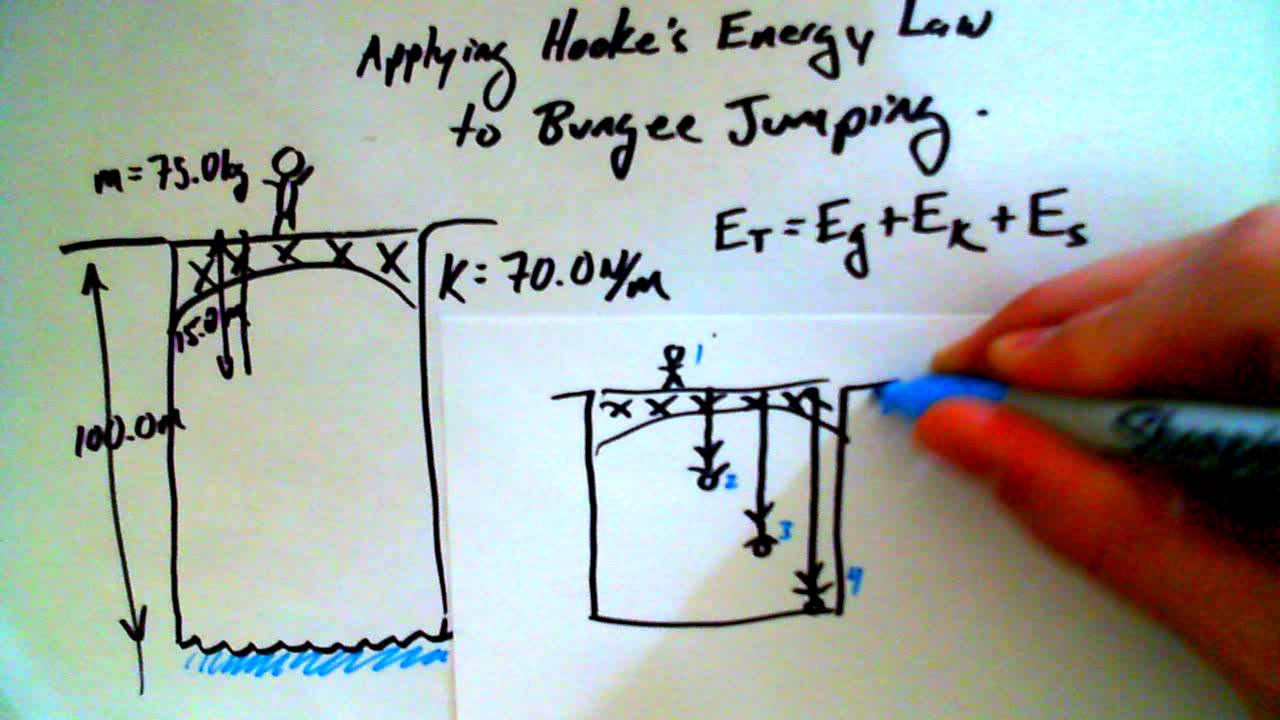 Applying Hooke's Energy Law
to Bungee Jumping.
m = 75.0kg
E_T = E_g + E_K + E_s
K = 70.0N/m
15.0m
100.0m
1
2
3
4
Sharpie